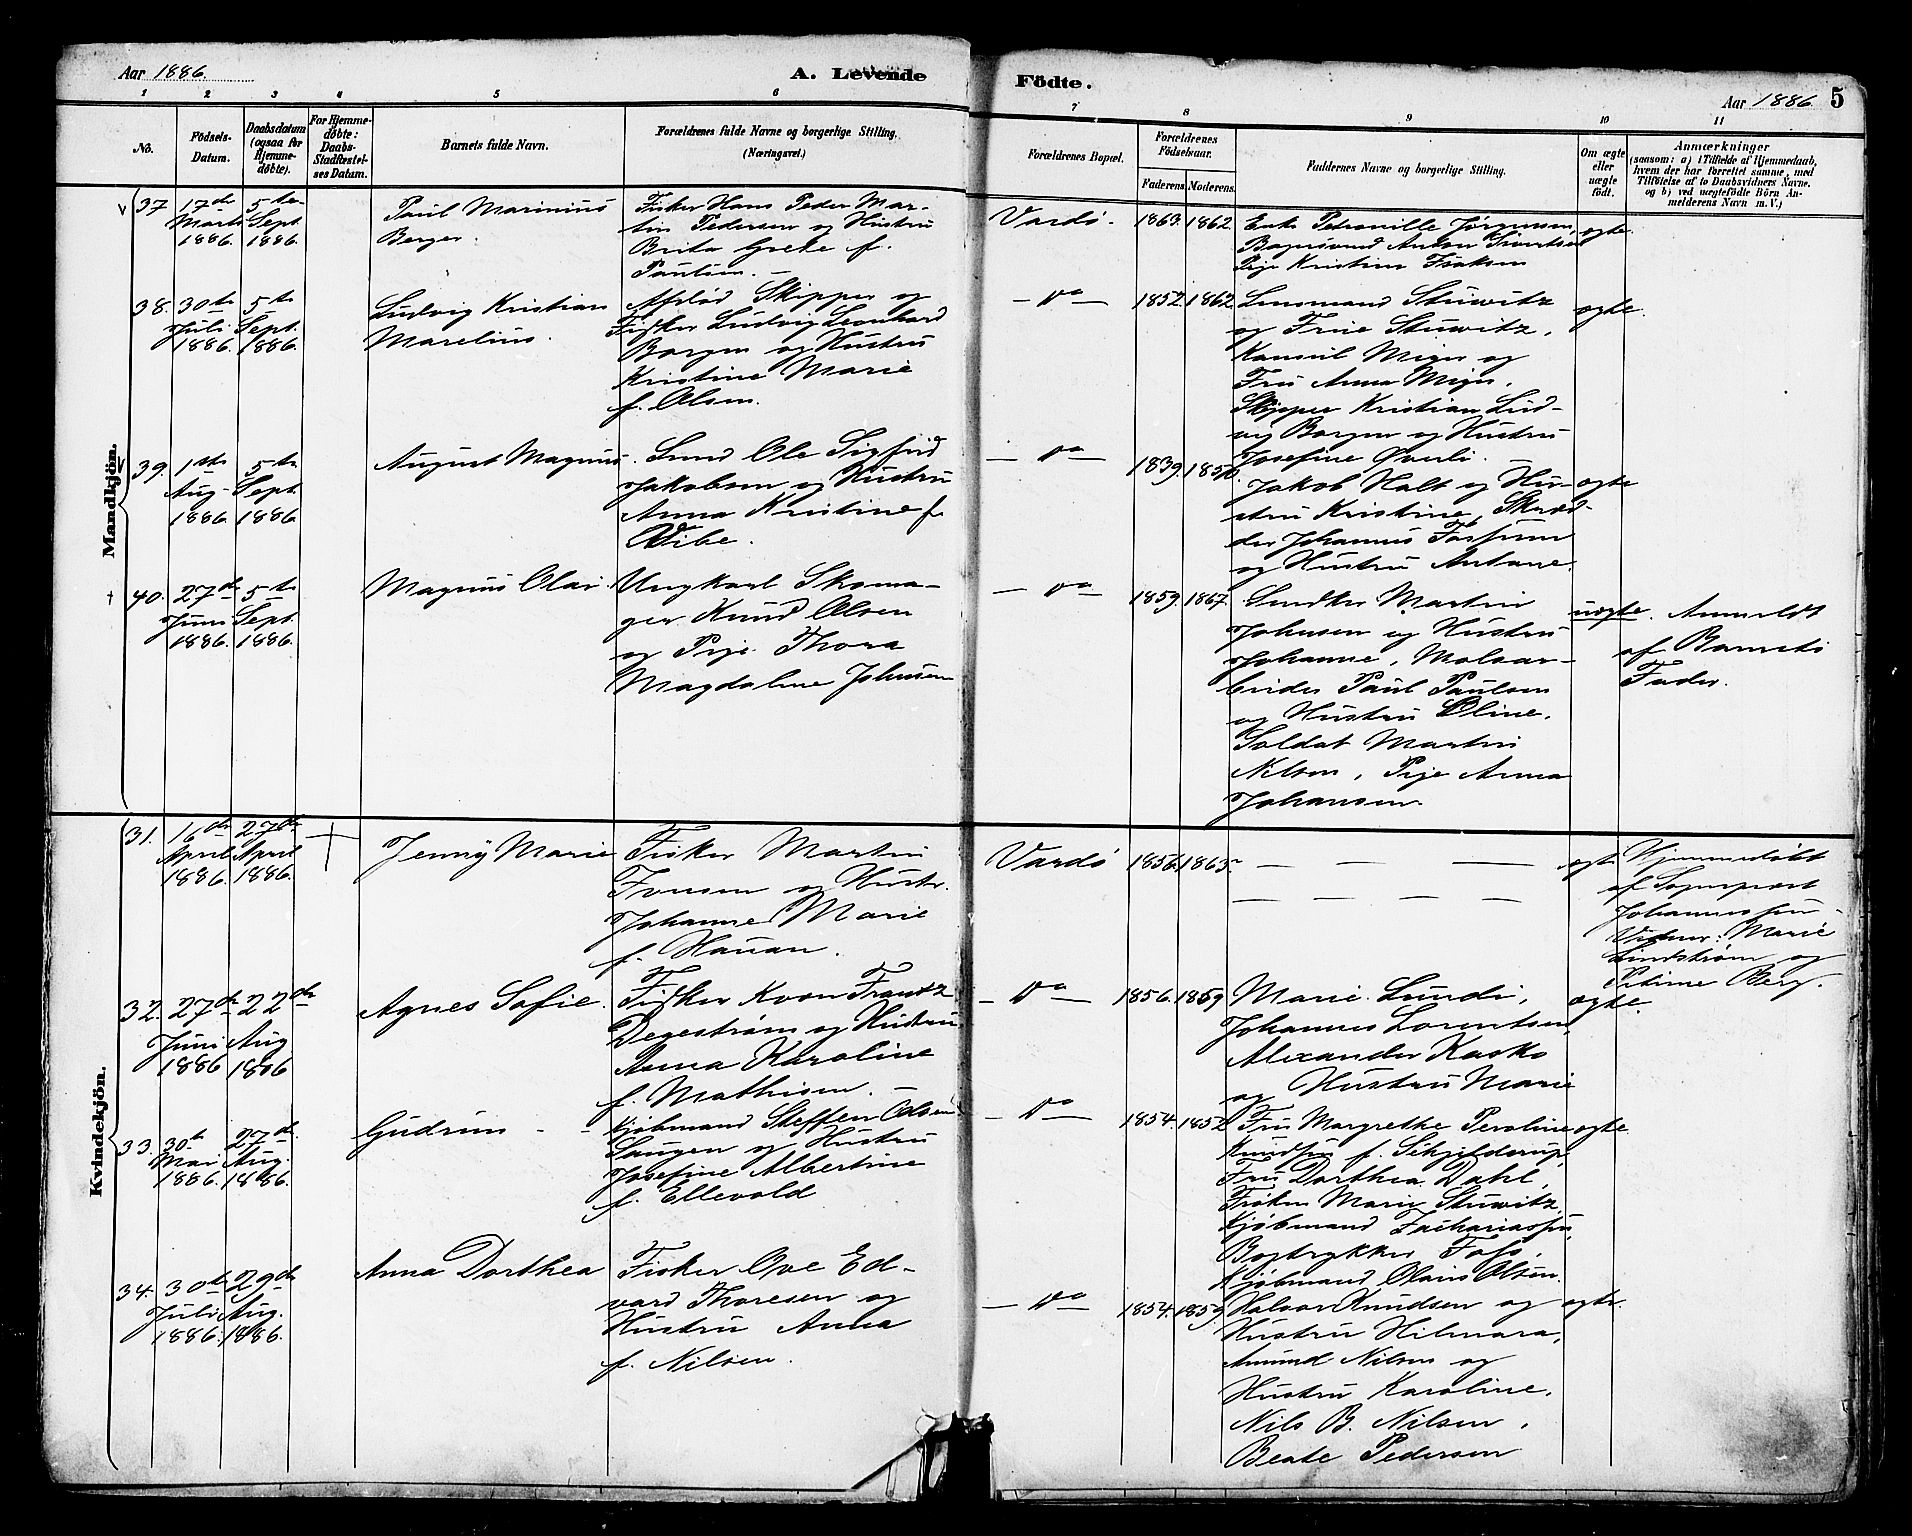 Aar 1886.
A. Levende
Födte.
Aar 1886 5
1 2 3 4 5 6 7 8 9 10 11
No.
Födsels-
Datum.
Daabsdatum
(ogsaa for
Hjemme-
døbte).
For Hjemme-
døbte:
Daabs-
Stadfæstel-
ses Datum.
Barnets fulde Navn.
Forældrenes fulde Navne og borgerlige Stilling.
(Næringsvei.)
Forældrenes Bopæl.
Forældrenes
Födselsaar.
Faderens Moderens.
Faddernes Navne og borgerlige Stilling.
Om ægte
eller
uægte
født.
Anmærkninger
(saasom: a) i Tilfælde af Hjemmedaab,
hvem der har forrettet samme, med
Tilföielse af to Daabsvidners Navne,
og b) ved uægtefödte Börn An-
melderens Navn m. V.)
Mandkjön.
37
17de
Marts
1886.
5te
Sept.
1886.
Paul Marinius
Berger.
Fisker Hans Peder Mar-
tin Pedersen og Hustru
Brita Grete f.
Paulsen.
Vardö.
1863. 1862.
Enke Petronille Jørgensen,
Anton Sivertsen
Pige Kristine Isaksen
ægte.
38.
30te
Juli
1886.
5te
Sept.
1886.
Ludvig Kristian
Marelius.
Afskød Skipper og
Fisker Ludvig Leonhard
Borgen og Hustru
Kristine Marie
f. Olsen.
— Do —
1852. 1862.
Lensmand Stuwitz
og Frue Stuwitz,
Konsul Meyer og
Fru Anna Meyer.
Skipper Kristian Lud-
vig Borgen og Hustru
Josefine Øverli.
ægte.
39.
1ste
Aug.
1886
5te
Sept.
1886
August Magnus.
Ole Sigfrid
Jakobsen og Hustru
Anna Kristine f.
Vibe.
— Do —
1839. 1850.
Jakob Halt og Hu-
stru Kristine, Skræd-
der Johannes Fosshum
og Hustru Antane.
ægte
40.
27de
Juni
1886.
5te
Sept.
1886.
Magnus Olai.
Ungkarl Skoma-
ger Knud Olsen
og Pige Thora
Magdalene Johnsen
— Do —
1859. 1867.
Snedker Martin
Johnsen og Hustru
Johanne, Malerar-
beider Paul Paulsen
og Hustru Oline.
Soldat Martin
Nilsen, Pige Anna
Johansen.
uægte.
Anmeldt
af Barnets
Fader.
Kvindekjön.
31.
16de
April
1886.
27de
April
1886.
Jenny Marie
Fisker Martin
Ivensen og Hustr.
Johanne Marie
f. Hauan.
Vardö
1856. 1865.
— — —
— — — — —
ægte
Hjemmedøbt
af Sognepræst
Johannessen
Vidner: Marie
Lindstrøm og
Petrine Berg.
32.
27de
Juni
1886
22de
Aug
1886
Agnes Sofie.
Fisker Kvon Frantz
Degestrøm og Hustru
Anna Karoline
f. Mathisen.
— Do —
1856. 1859.
Marie Lundi,
Johannes Lorentsen,
Alexander Kasko
og Hustru Marie
ægte.
33.
30te
Mai
1886.
27de
Aug.
1886.
Gudrun
Kjøbmand Steffen Olsen
Laugen og Hustru
Josefine Albertine
f. Ellevold
— Do —
1854. 1852
Fru Margrethe Peroline
Knudssen f. Schjelderup,
Fru Dorthea Dahl,
Frøken Marie Stuwitz,
Kjøbmand Zachariassen,
Bogtrykker Foss,
Kjøbmand Olaus Olsen.
ægte.
34.
30te
Juli
1886.
29de
Aug.
1886.
Anna Dorthea
Fisker Ove Ed-
vard Thoresen og
Hustru Anna
f. Nilsen.
— Do —
1854. 1859
Halvor Knudsen og
Hustru Hilmara,
Amund Nilsen og
Hustru Karoline.
Nils B. Nilsen,
Beate Pedersen
ægte.